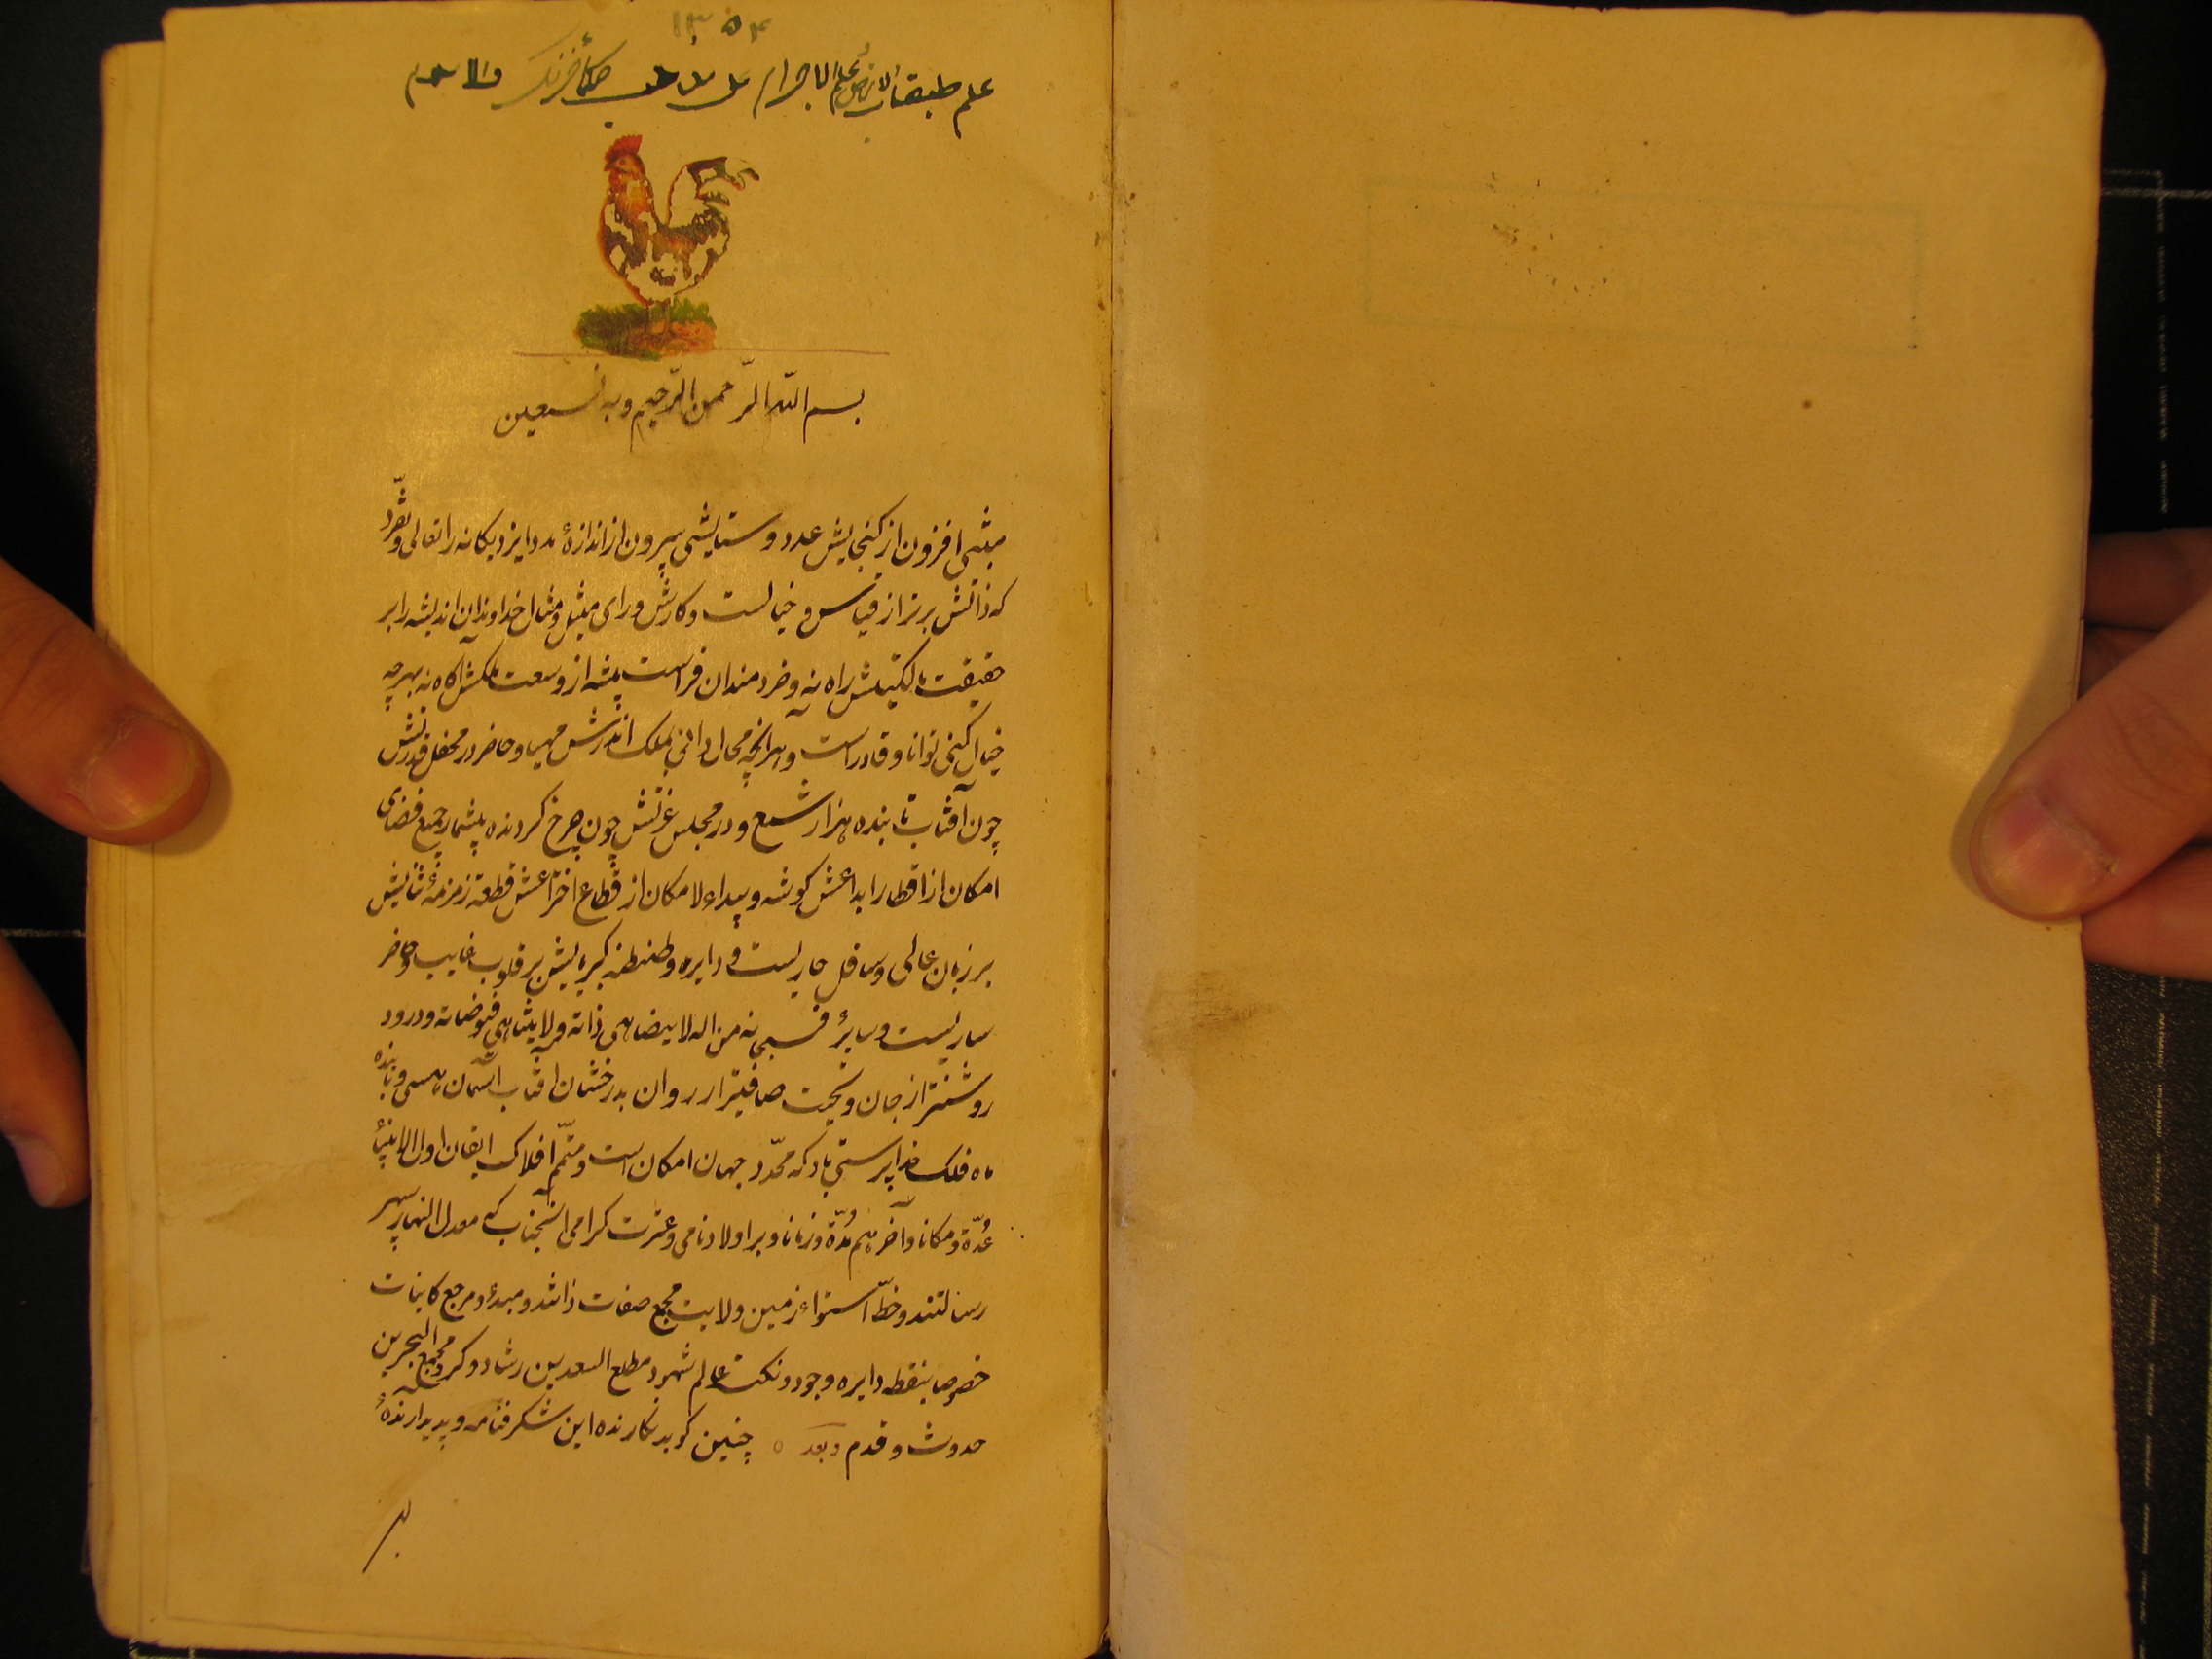 ۱۳۵۴
علم طبقات الارض علم الاجرام علی حکماء فرنک والاسلام
بسم اللّه الرّحمن الرّحیم وبه نستعین
افزون از کنجایش عدد و ستایشی بیرون از اندازهٔ مدد ایزد یکانه را تعالی وتفرّد
که ذاتش برتر از قیاس و خیالست و کارش ورای مثل و مثال خداوندان اندیشه را بر
حقیقت راه نه و خردمندان فراست پیشه از وسعت ملکش آکاه نه بهرچه
خیال کنی توانا و قادر است و هرآنچه محال دانی بملک اندرش مهیا و حاضر در محفل قدرتش
چون آفتاب تابنده هزار شمع و در مجلس عزتش چون چرخ کردنده بیشمار جمع فضای
امکان از اقطار ابداعش کوشه و بیداء لامکان از قطاع اختراعش قطعة زمزمهٔ ثنایش
بر زبان عالی و سافل جاریست و دایره و طنطنه کبریائیش بر قلوب غایب و حاضر
ساریست و سایر فسبحانه من اله لا یضاهی ذاته ولا یتناهی فیوضاته و درود
روشنتر از جان و تحیت صافیتر از روان بدرخشان آفتاب آسمان هستی و تابنده
ماه فلک خدا پرستی باد که محدّد جهان امکان است و متمّم افلاک ایقان اول الانبیاء
عُدّة و مکانا و آخرهم مُدّة و زمانا و بر اولاد نامی و عترت کرامی آنجناب که معدل النهار سپهر
رسالتند و خطّ استواء زمین ولایت مجمع صفات ذاتند و مبدء و مرجع کاینات
خصوصا بنقطه دایره وجود و نکتهٔ عالم شهود مطلع السعدین رشاد و کرم و مجمع البحرین
حدوث و قدم وبعد چنین کوید نکارنده این شکرفنامه و پدیدارندهٔ